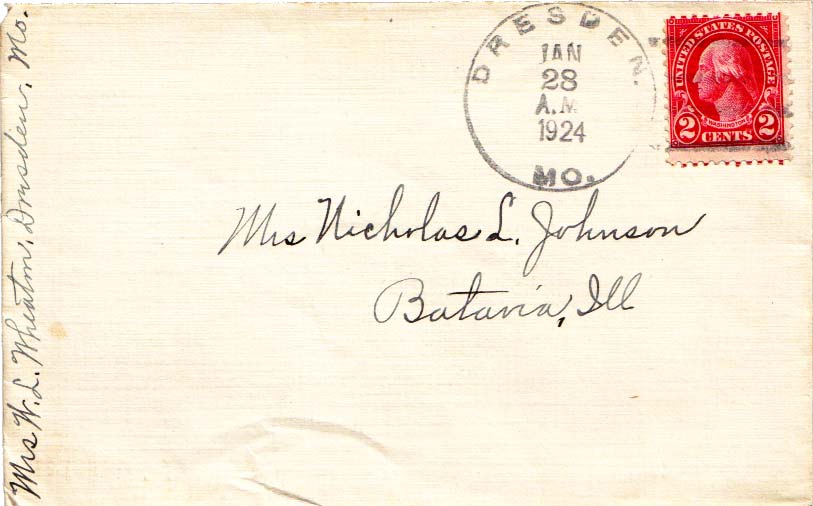 Mrs W. L. Wheaton, Dresden, Mo.
DRESDEN.
JAN
28
A.M.
1924
MO.
UNITED STATES POSTAGE
WASHINGTON
2 CENTS 2
Mrs Nicholas L. Johnson
Batavia, Ill